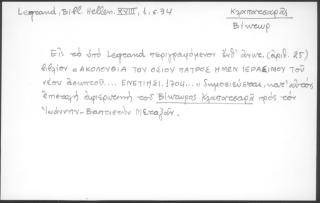 Legrand, Bibl. Hellén. XVIII, 1, σ. 34
Κλαπατσαρᾶς
Βίκτωρ
Εἰς τὸ ὑπὸ Legrand περιγραφόμενον ὑπ' ἀριθ. (ἀριθ. 25)
βιβλίον «ΑΚΟΛΟΥΘΙΑ ΤΟΥ ΟΣΙΟΥ ΠΑΤΡΟΣ ΗΜΩΝ ΙΕΡΑΣΙΜΟΥ ΤΟΥ
νέου ἀσκητοῦ.... ΕΝΕΤΙΗΣΙ. 1704...» δημοσιεύεται, κατ' αὐτὸς
ἐπιστολὴ ἀφιερωτικὴ τοῦ Βίκτωρος Κλαπατσαρᾶ πρὸς τὸν
Ἰωάννην-Βαπτιστὴν Μεταξᾶν.